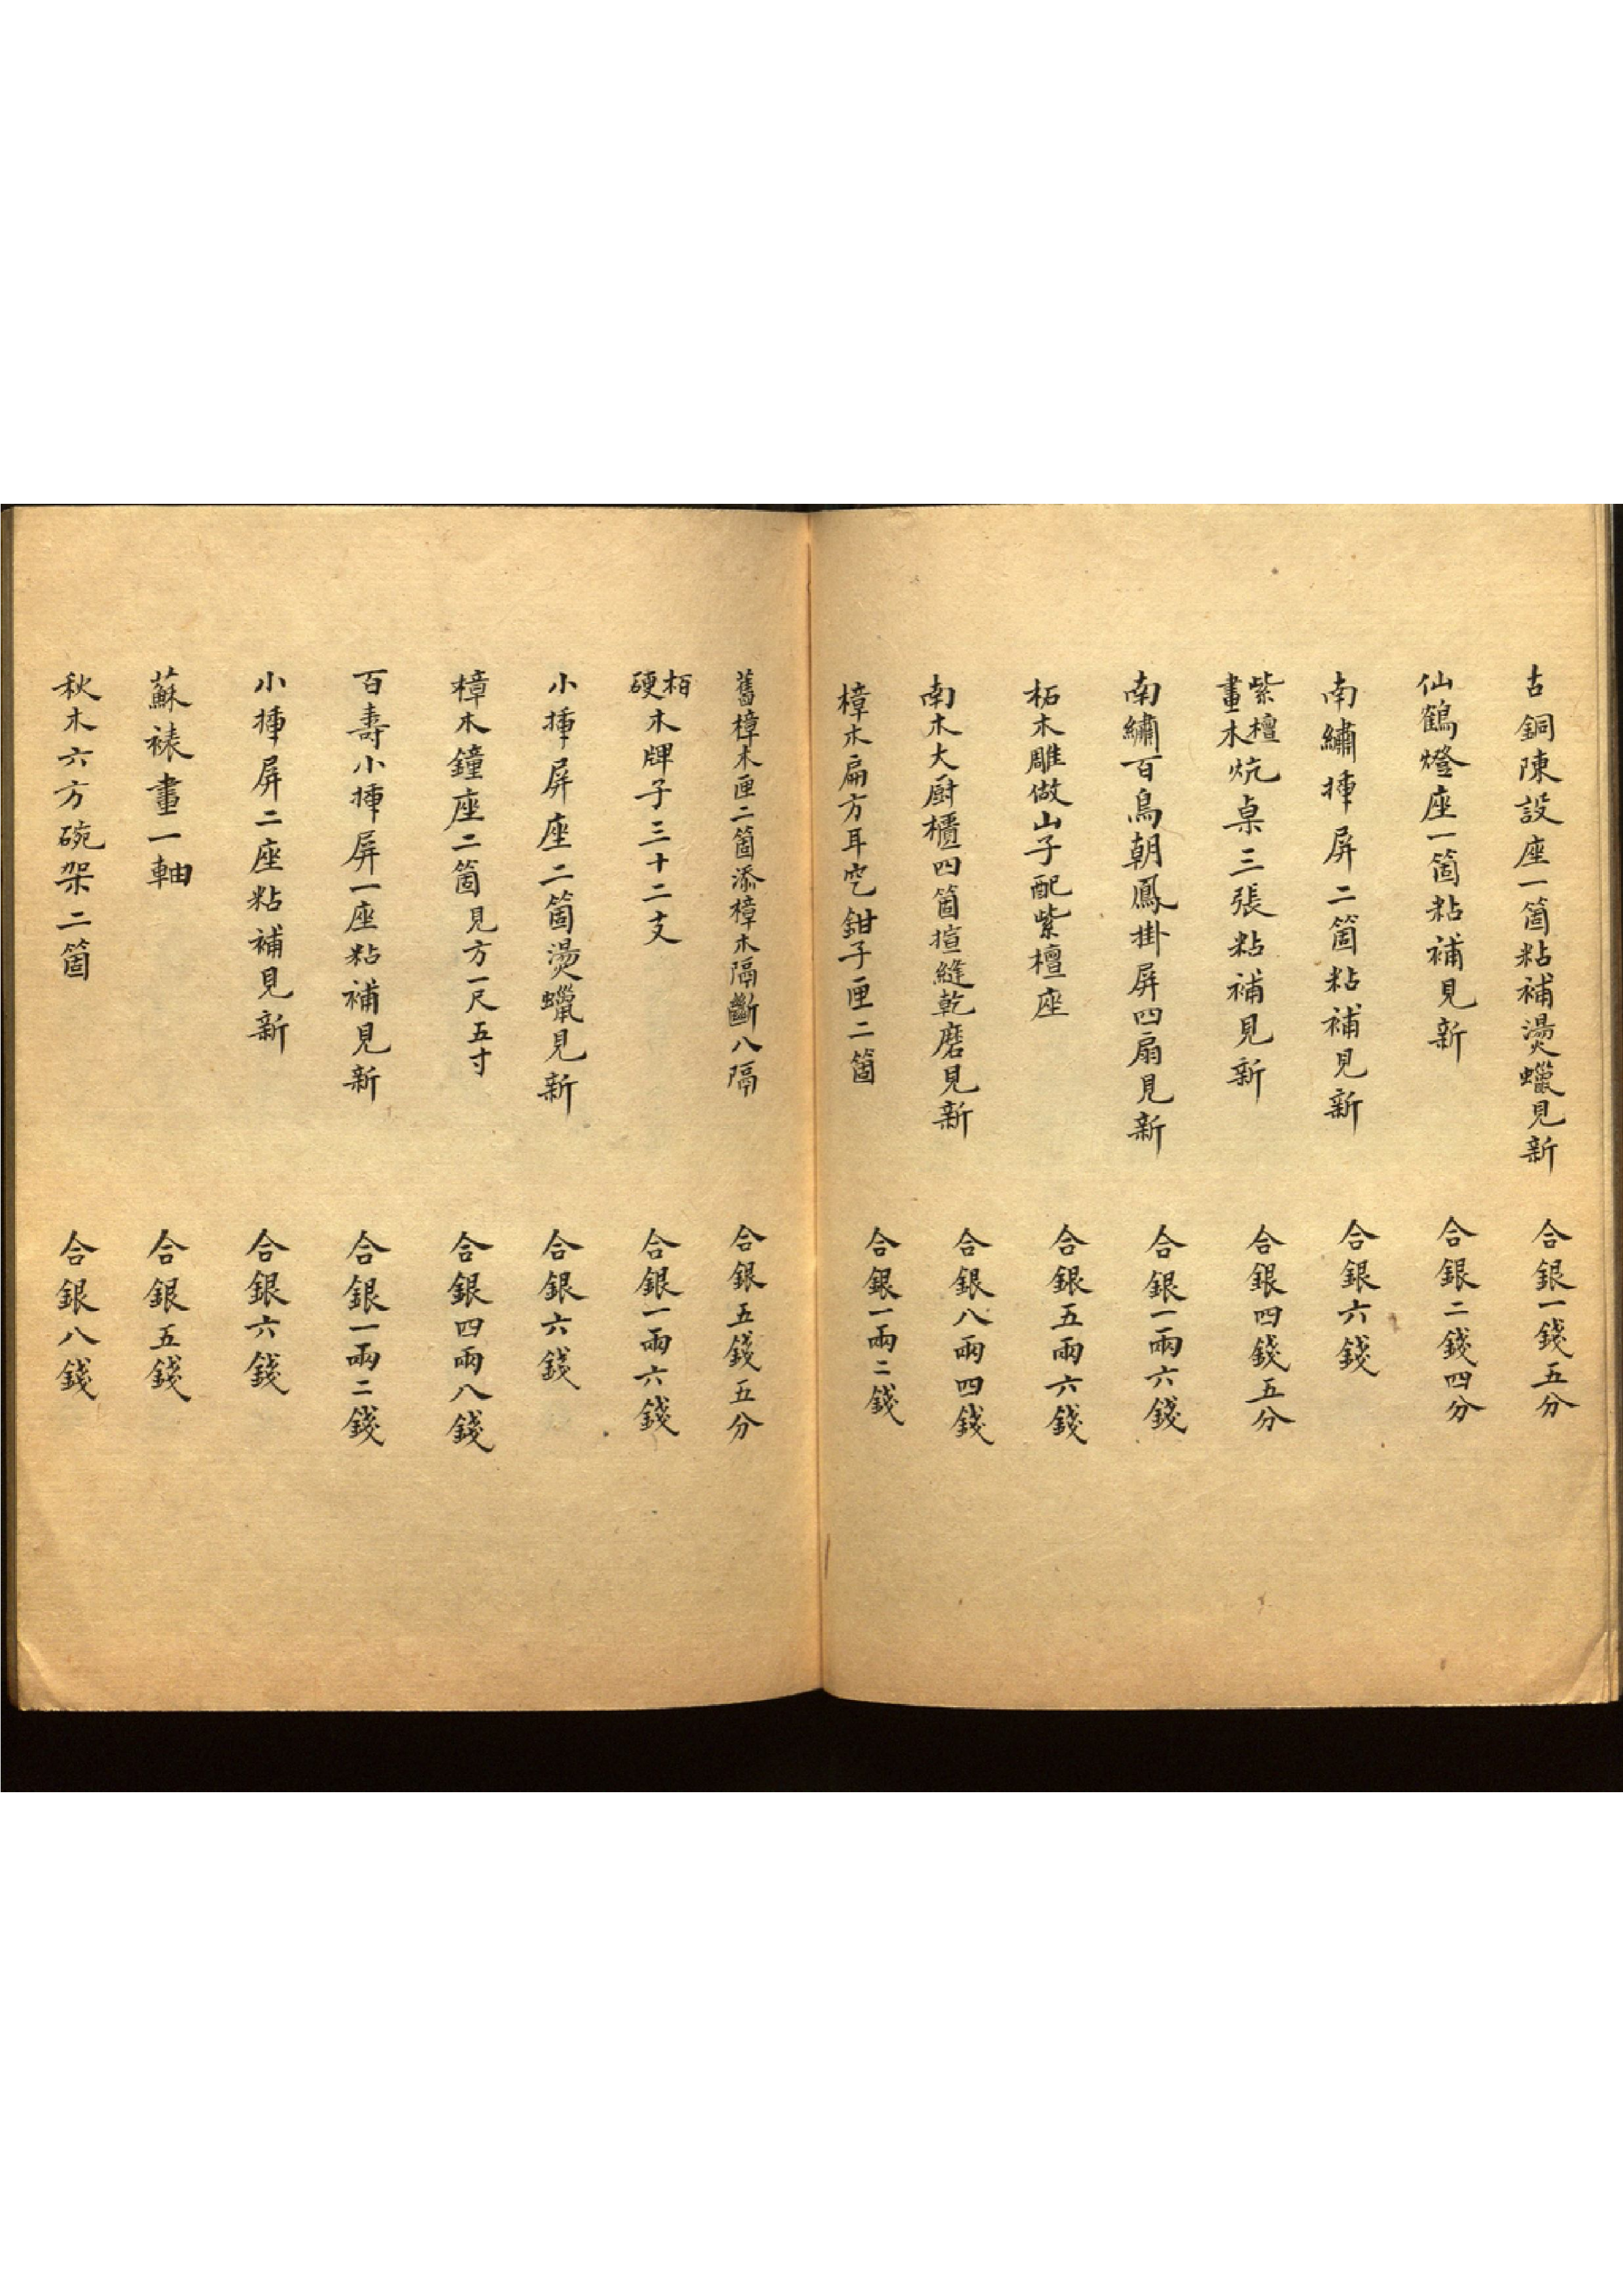 古銅陳設座一箇粘補燙蠟見新 合銀一錢五分
仙鶴燈座一箇粘補見新 合銀二錢四分
南繡揷屏二箇粘補見新 合銀六錢
紫檀畫木炕桌三張粘補見新 合銀四錢五分
南繡百鳥朝鳳掛屏四扇見新 合銀一兩六錢
柘木雕做山子配紫檀座 合銀五兩六錢
南木大厨櫃四箇揎縫乾磨見新 合銀八兩四錢
樟木扁方耳空鉗子匣二箇 合銀一兩二錢
舊樟木匣二箇添樟木隔斷八隔 合銀五錢五分
栢硬木牌子三十二支 合銀一兩六錢
小揷屏座二箇燙蠟見新 合銀六錢
樟木鐘座二箇見方一尺五寸 合銀四兩八錢
百壽小揷屏一座粘補見新 合銀一兩二錢
小揷屏二座粘補見新 合銀六錢
蘇裱畫一軸 合銀五錢
秋木六方碗架二箇 合銀八錢